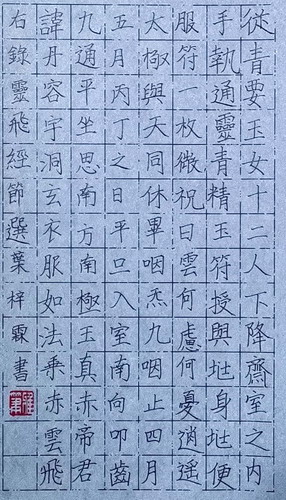 從青要玉女十二人下降齋室之内
手執通靈青精玉符授與兆身兆便
服符一枚微祝曰雲何慮何憂逍遥
太極與天同休畢咽炁九咽止四月
五月丙丁之日平旦入室南向叩齒
九通平坐思南方南極玉真赤帝君
諱丹容字洞玄衣服如法乘赤雲飛
右錄靈飛經節選葉梓霖書